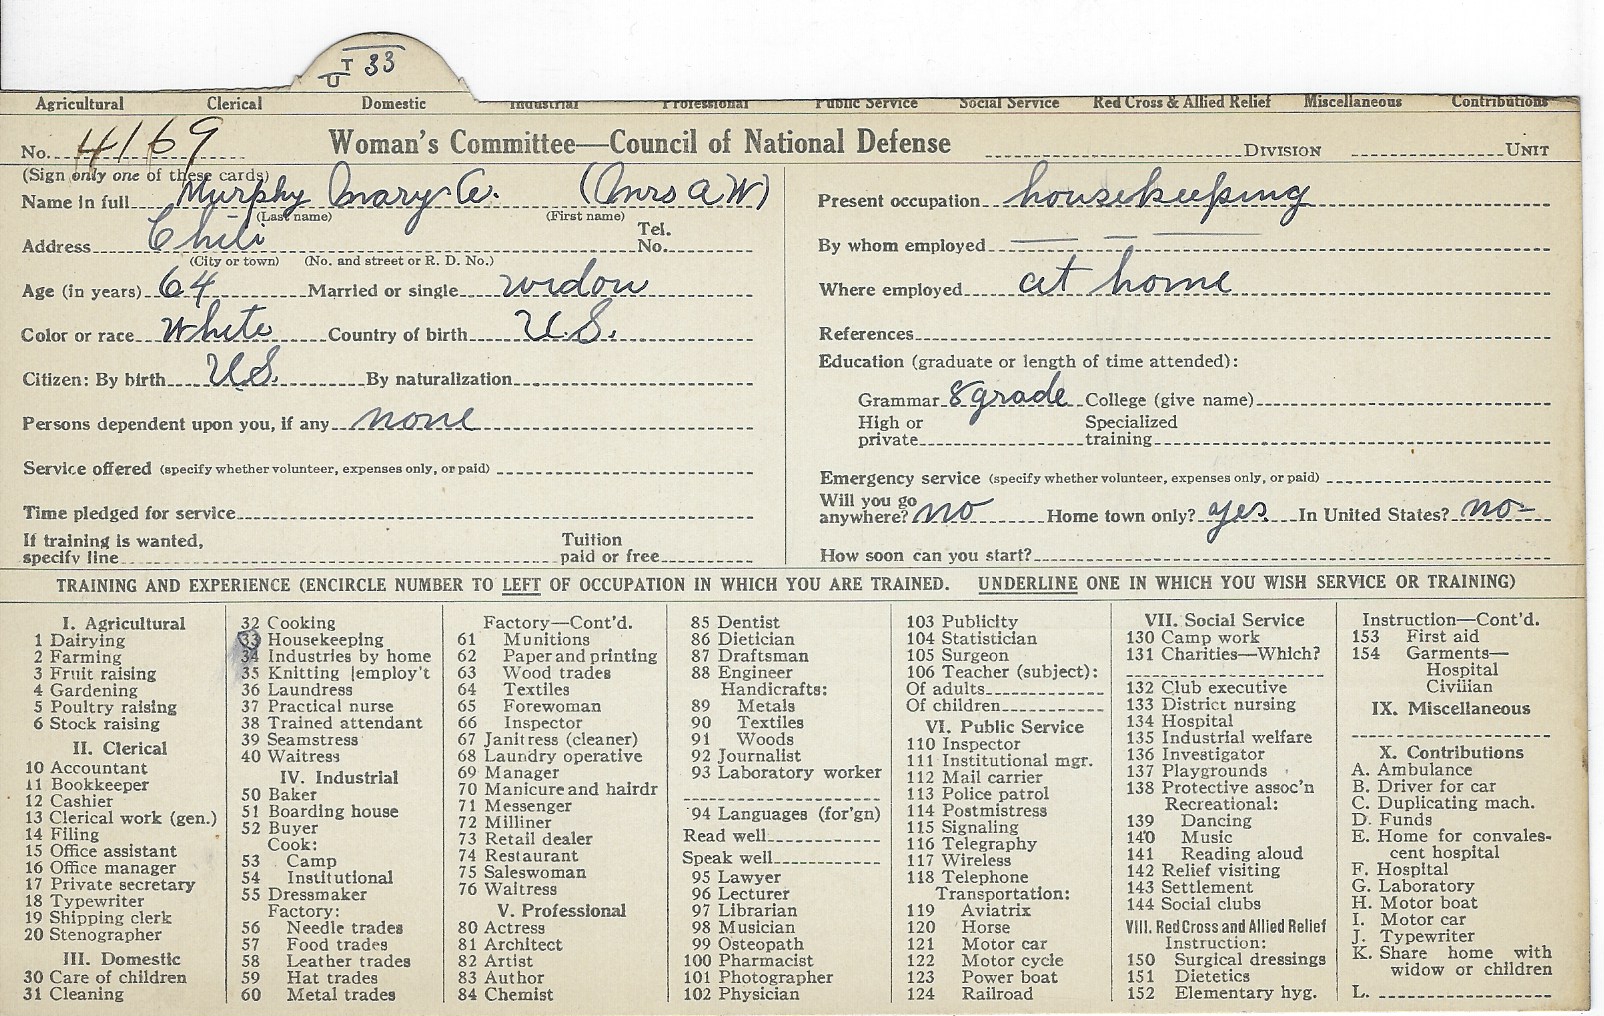 T
U 33
Agricultural Clerical Domestic Industrial Professional Public Service Social Service Red Cross & Allied Relief Miscellaneous Contributions
No. 4169 Woman's Committee—Council of National Defense DIVISION UNIT
(Sign only one of these cards)
Name in full Murphy Mary A. (Mrs A W)
(Last name) (First name)
Address Chili Tel. No.
(City or town) (No. and street or R. D. No.)
Age (in years) 64 Married or single widow
Color or race White Country of birth U.S.
Citizen: By birth U.S. By naturalization
Persons dependent upon you, if any none
Service offered (specify whether volunteer, expenses only, or paid)
Time pledged for service
If training is wanted, specify line Tuition paid or free
Present occupation housekeeping
By whom employed
Where employed at home
References
Education (graduate or length of time attended):
Grammar 8 grade College (give name)
High or private Specialized training
Emergency service (specify whether volunteer, expenses only, or paid)
Will you go anywhere? no Home town only? yes In United States? no
How soon can you start?
TRAINING AND EXPERIENCE (ENCIRCLE NUMBER TO LEFT OF OCCUPATION IN WHICH YOU ARE TRAINED. UNDERLINE ONE IN WHICH YOU WISH SERVICE OR TRAINING)
I. Agricultural
1 Dairying
2 Farming
3 Fruit raising
4 Gardening
5 Poultry raising
6 Stock raising
II. Clerical
10 Accountant
11 Bookkeeper
12 Cashier
13 Clerical work (gen.)
14 Filing
15 Office assistant
16 Office manager
17 Private secretary
18 Typewriter
19 Shipping clerk
20 Stenographer
III. Domestic
30 Care of children
31 Cleaning
32 Cooking
33 Housekeeping
34 Industries by home
35 Knitting [employ't
36 Laundress
37 Practical nurse
38 Trained attendant
39 Seamstress
40 Waitress
IV. Industrial
50 Baker
51 Boarding house
52 Buyer
Cook:
53 Camp
54 Institutional
55 Dressmaker
Factory:
56 Needle trades
57 Food trades
58 Leather trades
59 Hat trades
60 Metal trades
Factory—Cont'd.
61 Munitions
62 Paper and printing
63 Wood trades
64 Textiles
65 Forewoman
66 Inspector
67 Janitress (cleaner)
68 Laundry operative
69 Manager
70 Manicure and hairdr
71 Messenger
72 Milliner
73 Retail dealer
74 Restaurant
75 Saleswoman
76 Waitress
V. Professional
80 Actress
81 Architect
82 Artist
83 Author
84 Chemist
85 Dentist
86 Dietician
87 Draftsman
88 Engineer
Handicrafts:
89 Metals
90 Textiles
91 Woods
92 Journalist
93 Laboratory worker
94 Languages (for'gn)
Read well
Speak well
95 Lawyer
96 Lecturer
97 Librarian
98 Musician
99 Osteopath
100 Pharmacist
101 Photographer
102 Physician
103 Publicity
104 Statistician
105 Surgeon
106 Teacher (subject):
Of adults
Of children
VI. Public Service
110 Inspector
111 Institutional mgr.
112 Mail carrier
113 Police patrol
114 Postmistress
115 Signaling
116 Telegraphy
117 Wireless
118 Telephone
Transportation:
119 Aviatrix
120 Horse
121 Motor car
122 Motor cycle
123 Power boat
124 Railroad
VII. Social Service
130 Camp work
131 Charities—Which?
132 Club executive
133 District nursing
134 Hospital
135 Industrial welfare
136 Investigator
137 Playgrounds
138 Protective assoc'n
Recreational:
139 Dancing
140 Music
141 Reading aloud
142 Relief visiting
143 Settlement
144 Social clubs
VIII. Red Cross and Allied Relief
Instruction:
150 Surgical dressings
151 Dietetics
152 Elementary hyg.
Instruction—Cont'd.
153 First aid
154 Garments—
Hospital
Civilian
IX. Miscellaneous
X. Contributions
A. Ambulance
B. Driver for car
C. Duplicating mach.
D. Funds
E. Home for convales-
cent hospital
F. Hospital
G. Laboratory
H. Motor boat
I. Motor car
J. Typewriter
K. Share home with
widow or children
L.